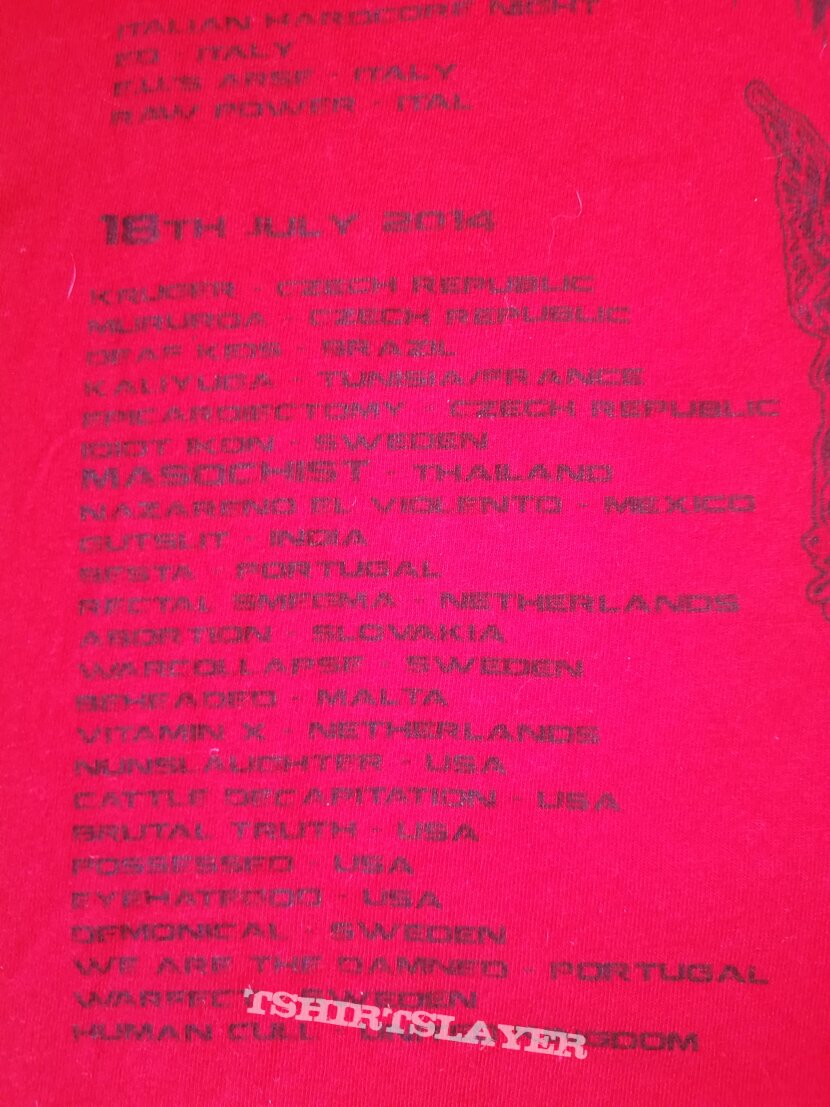 ITALIAN HARDCORE NIGHT
ED - ITALY
E.U.'S ARSE - ITALY
RAW POWER - ITAL
18TH JULY 2014
KRUGER - CZECH REPUBLIC
MURUROA - CZECH REPUBLIC
DEAF KIDS - BRAZIL
KALIYUGA - TUNISIA/FRANCE
EPICARDIECTOMY - CZECH REPUBLIC
IDIOT IKON - SWEDEN
MASOCHIST - THAILAND
NAZARENO EL VIOLENTO - MEXICO
GUTSLIT - INDIA
BESTA - PORTUGAL
RECTAL SMEGMA - NETHERLANDS
ABORTION - SLOVAKIA
WARCOLLAPSE - SWEDEN
BEHEADED - MALTA
VITAMIN X - NETHERLANDS
NUNSLAUGHTER - USA
CATTLE DECAPITATION - USA
BRUTAL TRUTH - USA
POSSESSED - USA
EYEHATEGOD - USA
DEMONICAL - SWEDEN
WE ARE THE DAMNED - PORTUGAL
WARFECT - SWEDEN
HUMAN CULL - UNITED KINGDOM
TSHIRTSLAYER